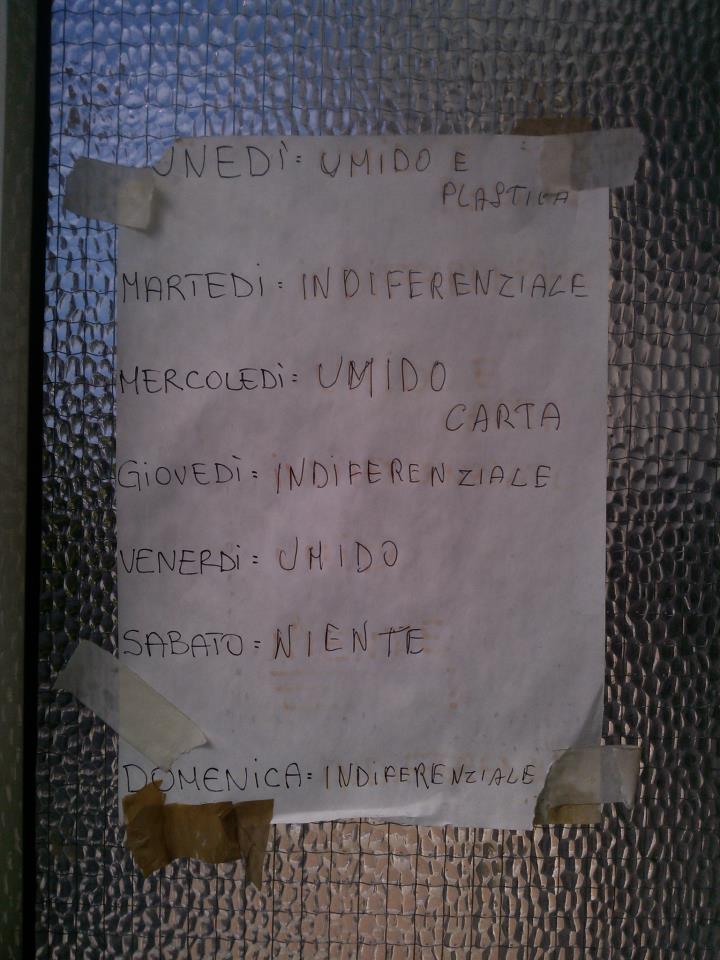 UNEDÌ: UMIDO E
PLASTICA
MARTEDÌ: INDIFERENZIALE
MERCOLEDÌ: UMIDO
CARTA
GIOVEDÌ: INDIFERENZIALE
VENERDÌ: UMIDO
SABATO: NIENTE
DOMENICA: INDIFERENZIALE